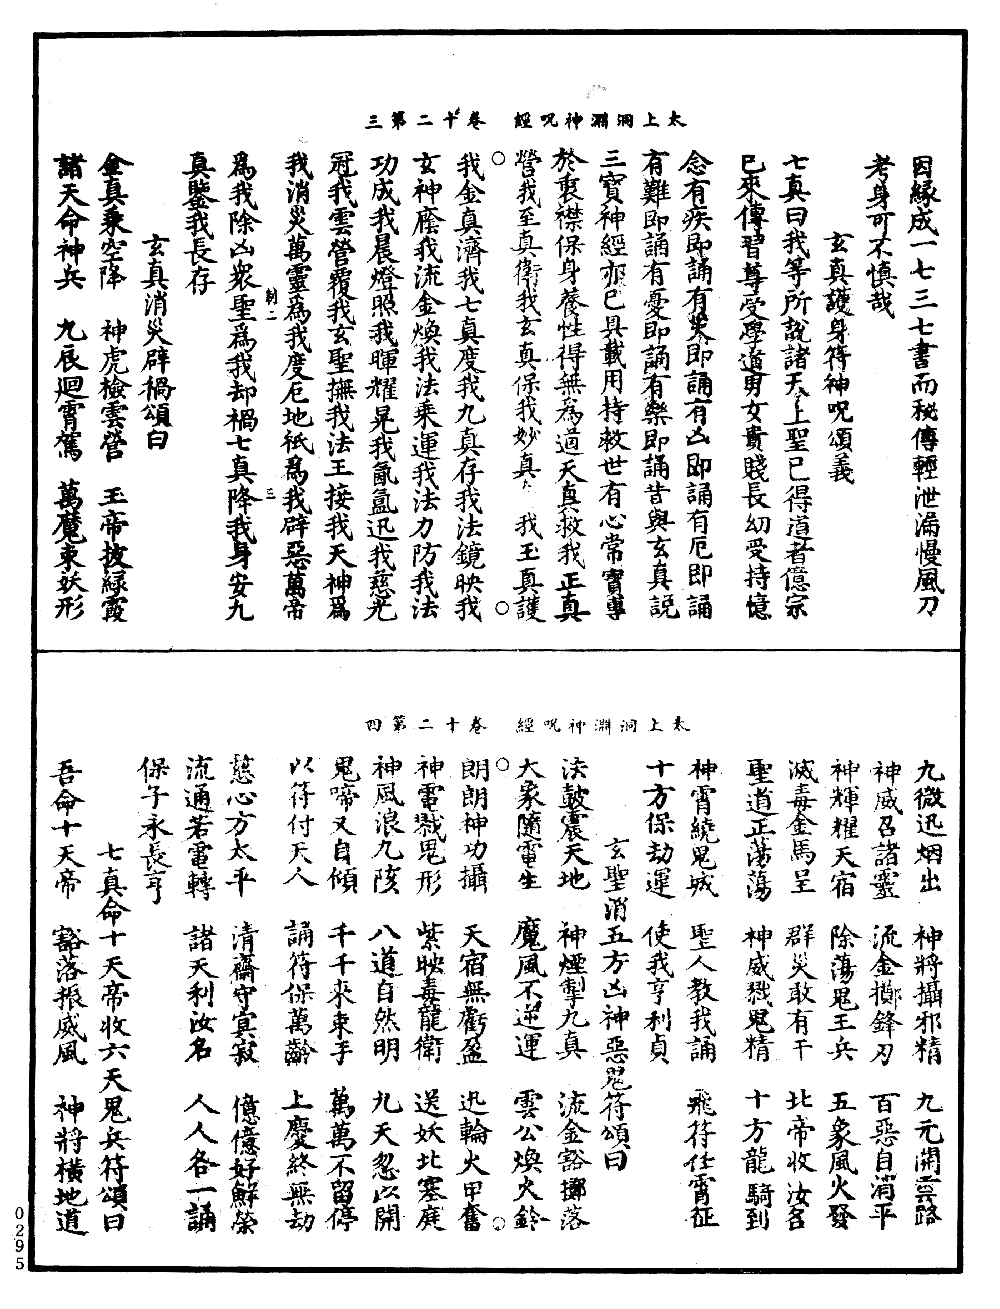 太上洞淵神呪經　卷十二第三
因緣成一七三七書而秘傳輕泄漏慢風刀
考身可不慎哉
玄真護身符神呪頌義
七真曰我等所說諸天上聖已得道者億宗
已來傳習尊受學道男女貴賤長幼受持憶
念有疾即誦有災即誦有凶即誦有厄即誦
有難即誦有憂即誦有樂即誦皆與玄真說
三寶神經亦已具載用持救世有心常寶專
於衷襟保身養性得無為道天真救我正真
營我至真衛我玄真保我妙真　我玉真護
我金真濟我七真度我九真存我法鏡映我
女神麾我流金煥我法乘運我法力防我法
功成我晨燈照我暉耀晃我氤氳迅我慈光
冠我雲營覆我玄聖撫我法王接我天神為
我消災萬靈為我度厄地祇為我辟惡萬帝
制二　三
為我除凶衆聖為我却禍七真降我身安九
真鑒我長存
玄真消災辟禍頌曰
金真乘空降　神虎檢雲營　玉帝披綠霞
諸天命神兵　九辰迴霄駕　萬魔束妖形
太上洞淵神呪經　卷十二第四
九微迅烟出　神將攝邪精　九元開雲路
神威召諸靈　流金擲鋒刃　百惡自消平
神輝耀天宿　除蕩鬼王兵　五象風火發
滅毒金馬呈　群災敢有干　北帝收汝名
聖道正蕩蕩　神威戮鬼精　十方龍騎到
神霄繞鬼城　聖人教我誦　飛符任霄征
十方保劫運　使我亨利貞
玄聖消五方凶神惡鬼符頌曰
法鼓震天地　神煙掣九真　流金豁擲落
大象隨電生　魔風不逆運　雲公煥火鈴
朗朗神功攝　天宿無虧盈　迅輪火甲奮
神雷戮鬼形　紫映毒龍衛　送妖北塞庭
神風浪九陔　八道自然明　九天忽以開
鬼啼又自傾　千千來束手　萬萬不留停
以符付天人　誦符保萬齡　上慶終無劫
慈心方太平　清齋守寘寂　億億好鮮榮
流通若電轉　諸天利汝名　人人各一誦
保子永長亨
七真命十天帝收六天鬼兵符頌曰
吾命十天帝　豁落振威風　神將橫地道
0295